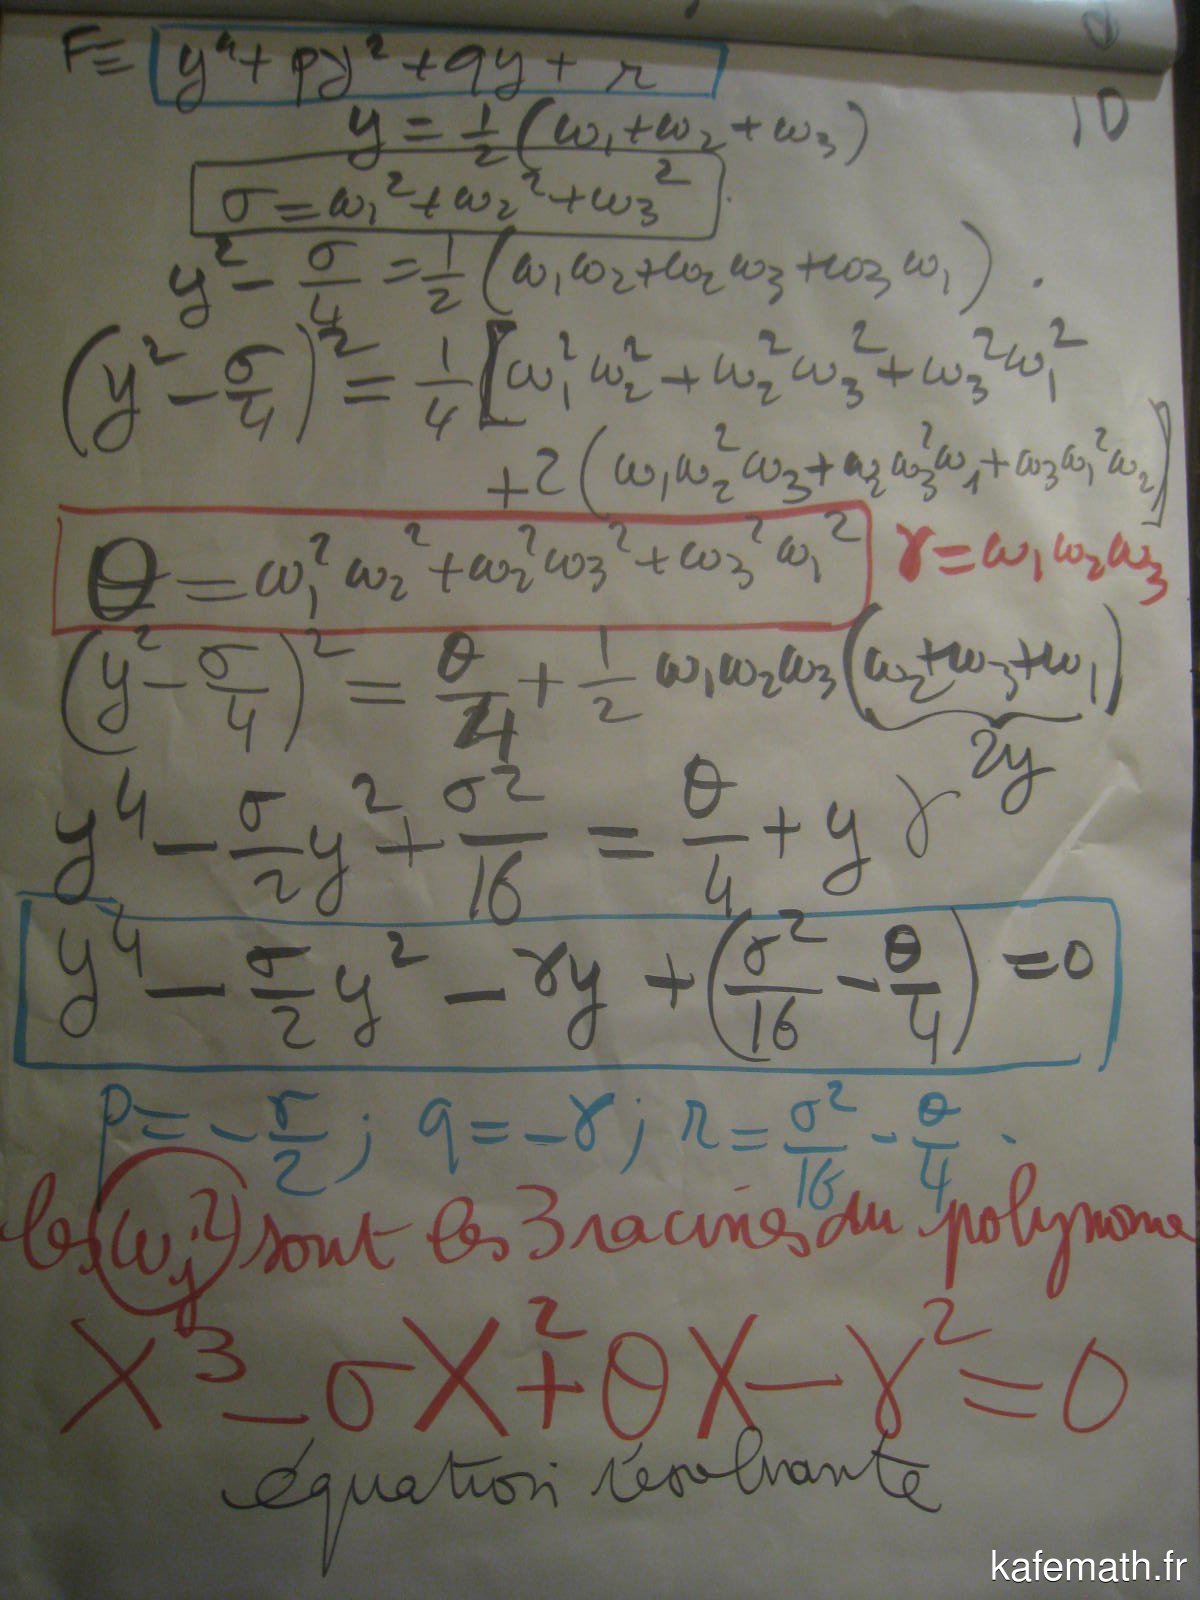 10
F = y⁴ + py² + qy + r
y = 1/2 (ω₁ + ω₂ + ω₃)
σ = ω₁² + ω₂² + ω₃².
y² - σ/4 = 1/2 (ω₁ω₂ + ω₂ω₃ + ω₃ω₁).
(y² - σ/4)² = 1/4 [ω₁²ω₂² + ω₂²ω₃² + ω₃²ω₁²
+ 2(ω₁ω₂²ω₃ + ω₂ω₃²ω₁ + ω₃ω₁²ω₂)]
θ = ω₁²ω₂² + ω₂²ω₃² + ω₃²ω₁² γ = ω₁ω₂ω₃
(y² - σ/4)² = θ/4 + 1/2 ω₁ω₂ω₃ (ω₂ + ω₃ + ω₁)
2y
y⁴ - σ/2 y² + σ²/16 = θ/4 + y γ
y⁴ - σ/2 y² - γy + (σ²/16 - θ/4) = 0
p = -σ/2 ; q = -γ ; r = σ²/16 - θ/4.
les ωⱼ² sont les 3 racines du polynome
X³ - σX² + θX - γ² = 0
équation résolvante
kafemath.fr